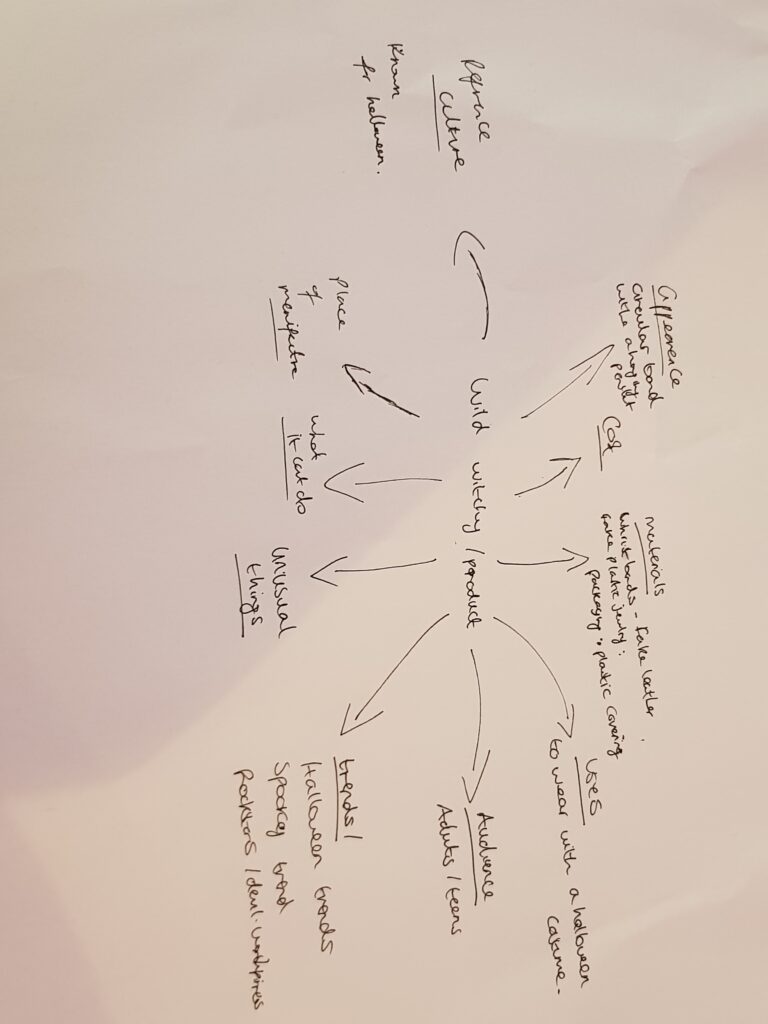 Appearence
circular band
with a hanging
Cost
materials
Whrist bands - Fake leather .
Fake plastic jewlry :
packaging : plastic covering
Uses
to wear with a halloween
costume.
Refrence
culture
Known
for halloween.
Wild witchy / product
Audience
Adults / teens
Place
of
what
it can do
Unusual
things
trends /
Halloween trends
Spookey trend
Rockstars / devil-